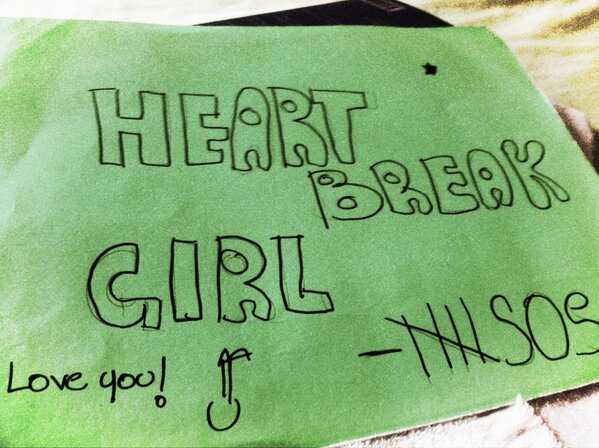 HEART
BREAK
GIRL
Love you!
- 𝍸SOS